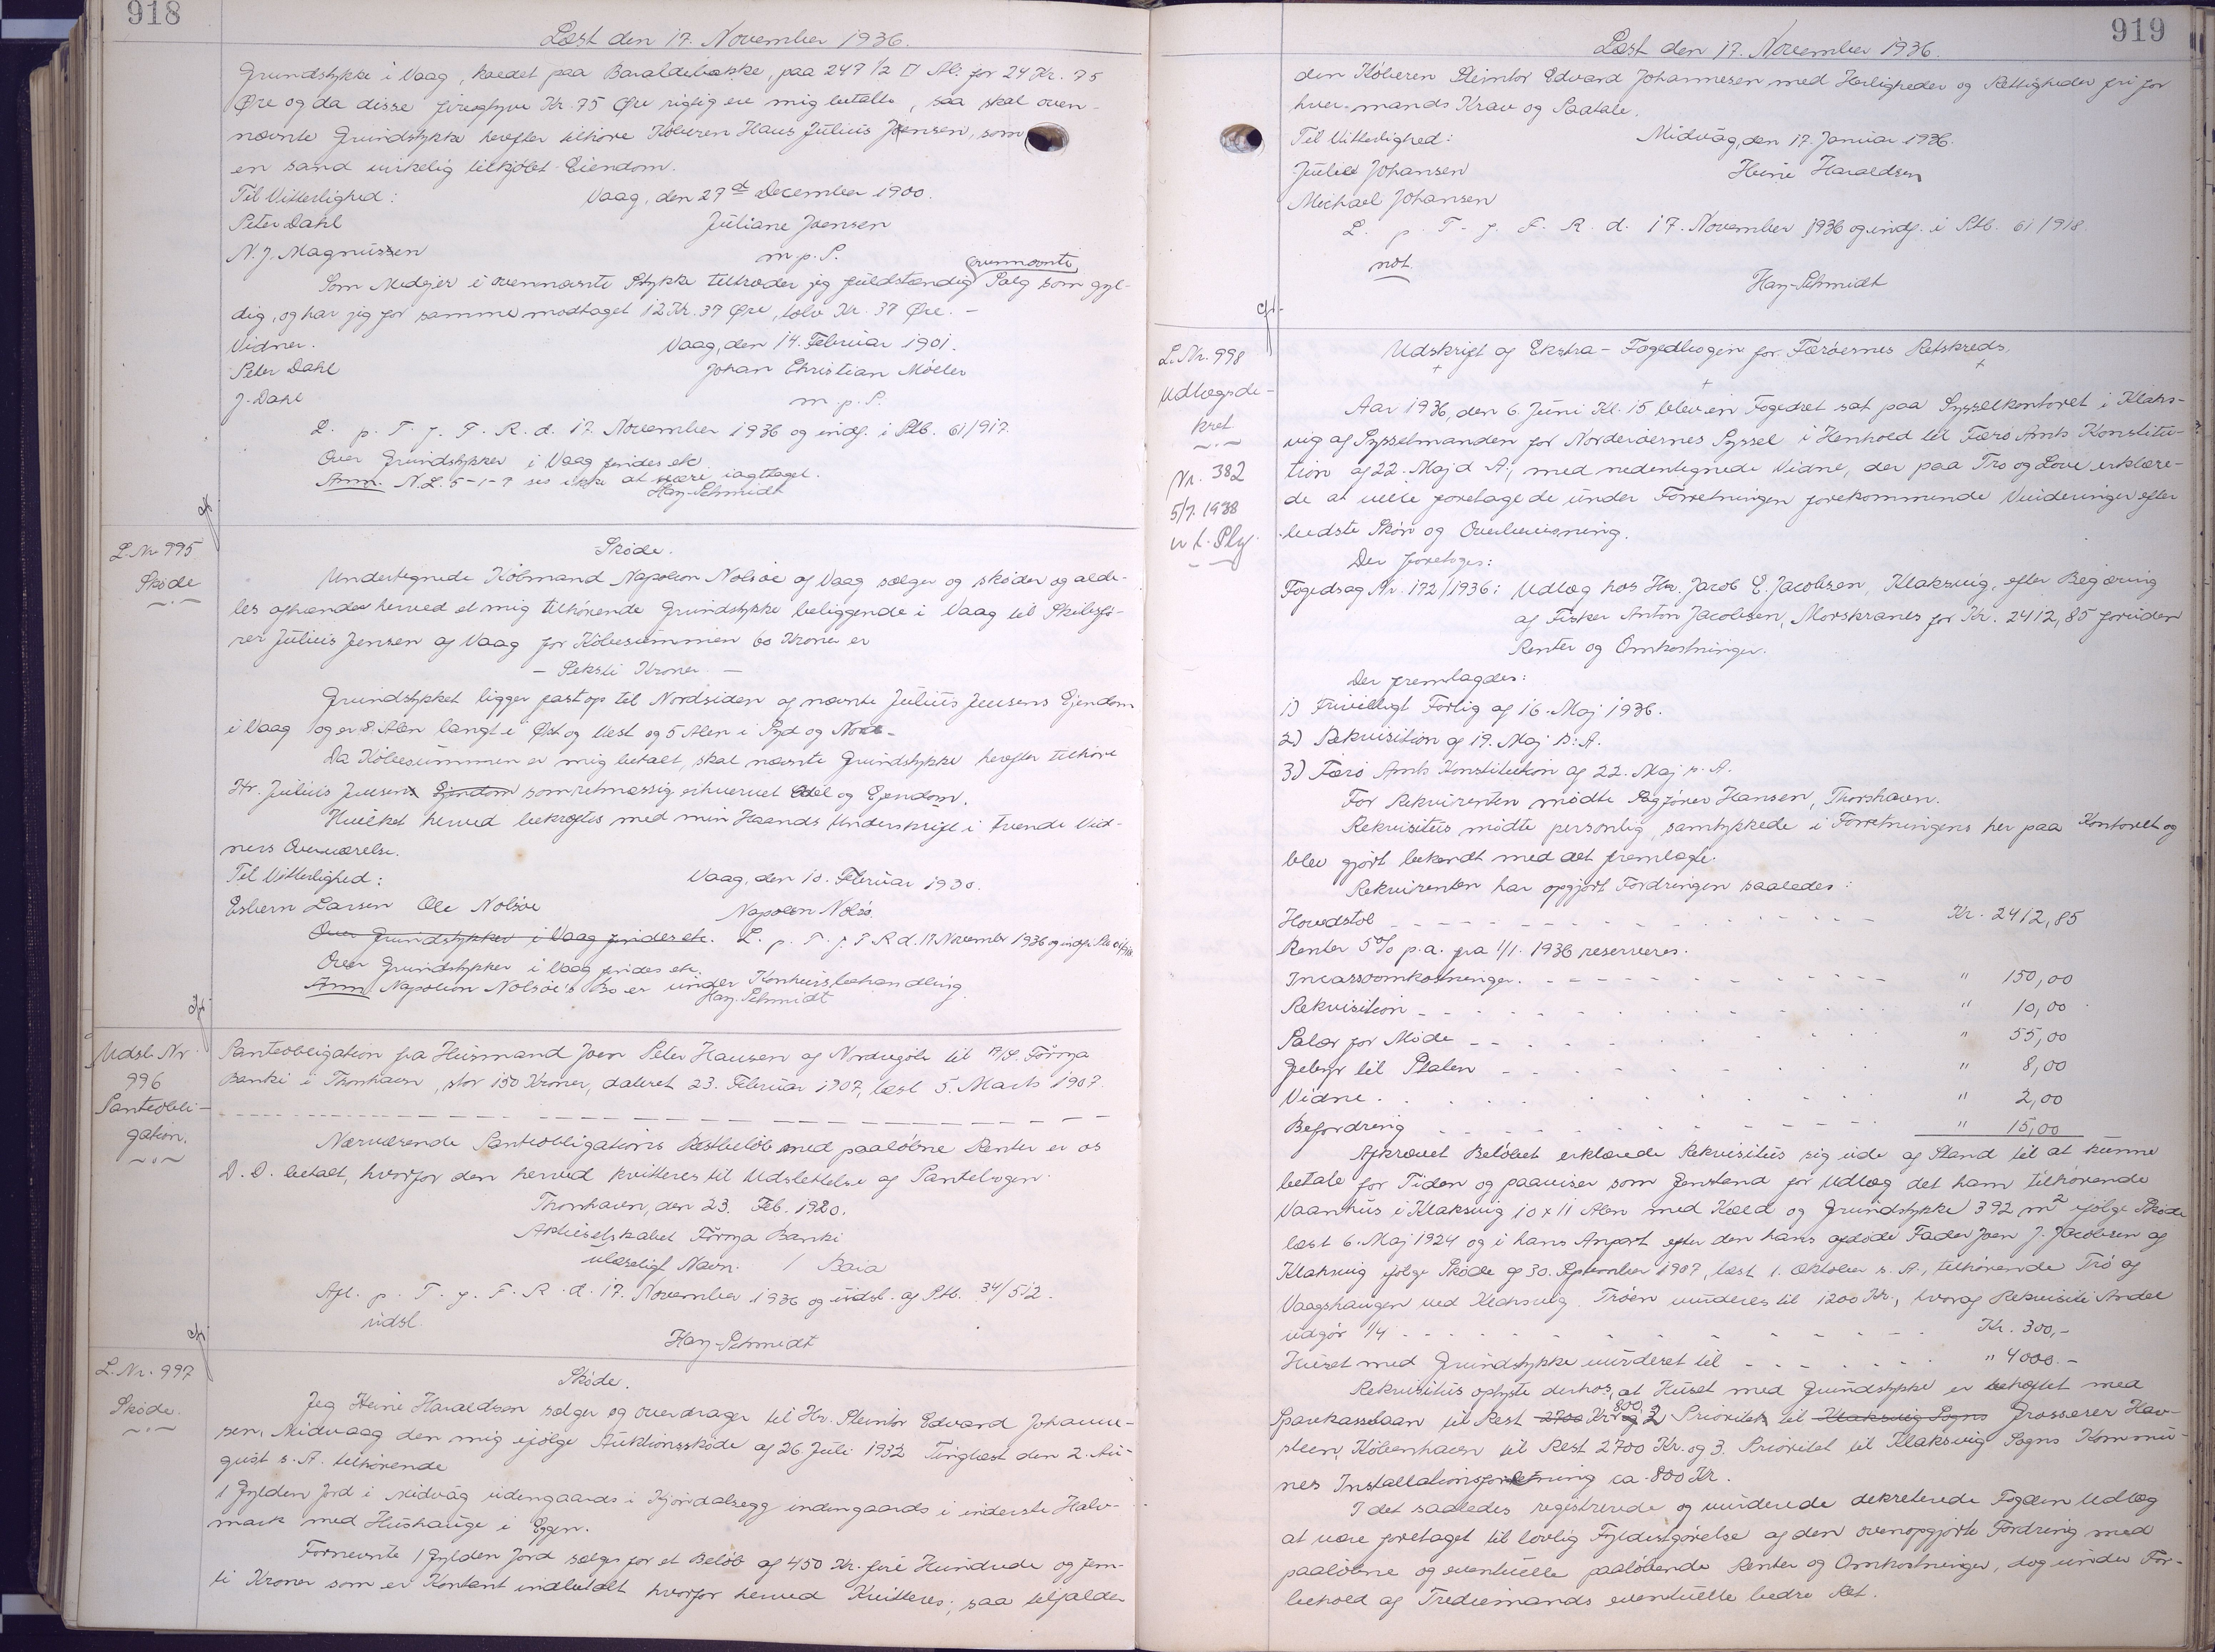 918
Læst den 17. November 1936.
Grundstykke i Vaag, kaedet paa Baraldsbakke, paa 247 1/2 □ Al. for 24 Kr. 75
Øre og da disse fireogtyve Kr. 75 Øre rigtig ere mig betalte, saa skal oven-
nævnte Grundstykke herefter tilhøre Køberen Hans Julius Joensen, som
en sand virkelig tilkjøbt Eiendom.
Til Vitterlighed: Vaag, den 29de December 1900.
Peter Dahl Juliane Joensen
N. J. Magnussen m. p. S.
Som Medejer i ovennævnte Stykke tiltræder jeg fuldstændig ovennævnte Salg som gyl-
dig, og har jeg for samme modtaget 12 Kr. 37 Øre, tolv Kr. 37 Øre. -
Vidner. Vaag, den 14. Februar 1901.
Peter Dahl Johan Christian Møller
J. Dahl m. p. S.
L. p. T. f. F. R. d. 17. November 1936 og indf. i Ptb. 61/917.
Over Grundstykker i Vaag findes etc
Anm. N.L. 5-1-7 ses ikke at være iagttaget.
Hay-Schmidt
L. Nr. 995
Skøde
Skøde.
Undertegnede Købmand Napoleon Nolsøe af Vaag sælger og skøder og alde-
les afhænder herved et mig tilhørende Grundstykke beliggende i Vaag til Skibsfø-
rer Julius Jensen af Vaag for Købesummen 60 Kroner er
- Seksti Kroner -
Grundstykket ligger fast op til Nordsiden af nævnte Julius Jensens Ejendom
i Vaag og er 8 Alen langt i Øst og Vest og 5 Alen i Syd og Nord.
Da Købesummen er mig betalt, skal nævnte Grundstykke herefter tilhøre
Hr. Julius Jensens Ejendom som retmæssig erhvervet Odel og Ejendom.
Hvilket herved bekræftes med min Haands Underskrift i tvende Vid-
ners Overværelse.
Til Vitterlighed: Vaag, den 10. Februar 1930.
Esbern Larsen Ole Nolsøe Napoleon Nolsø.
Over Grundstykker i Vaag findes etc. L. p. T. f. F R d. 17 November 1936 og indf. i Ptb 61/918
Over Grundstykker i Vaag findes etc.
Anm Napoleon Nolsøe's Bo er under Konkursbehandling.
Hay-Schmidt
Udsl. Nr
996
Panteobli-
gation.
Panteobligation fra Husmand Joen Peter Hansen af Nordragøte til A/S. Føroya
Banki i Thorshavn, stor 150 Kroner, dateret 23. Februar 1907, læst 5. Marts 1907.
Nærværende Panteobligations Restbeløb med paaløbne Renter er os
D. D. betalt, hvorfor den herved kvitteres til Udslettelse af Pantebogen.
Thorshavn, den 23. Feb. 1920.
Aktieselskabet Føroya Banki
ulæseligt Navn. / Baia
Afl. p. T. f. F. R. d. 17. November 1936 og udsl. af Ptb. 34/512.
udsl.
Hay-Schmidt
L. Nr. 997
Skøde.
Skøde.
Jeg Heine Haraldsen sælger og overdrager til Hr. Steintor Edvard Johanne-
sen, Midvaag den mig ifølge Auktionsskøde af 26 Juli 1932 Tinglæst den 2. Au-
gust s. A. tilhørende
1 Gylden Jord i Midvåg udengaards i Kjordalsegg indengaards i inderste Halv-
mark med Hushauge i Eggen.
Fornevnte 1 Gylden Jord sælges for et Beløb af 450 Kr. fire Hundrede og fem-
ti Kroner som er Kontant indbetalt hvorfor herved Kvitteres; saa tilfalder
919
Læst den 17. November 1936.
den Køberen Steintor Edvard Johannesen med Herligheder og Rettigheder fri for
hver-mands Krav og Paatale.
Til Vitterlighed: Midvåg, den 17. Januar 1936.
Julie Johansen Heine Haraldsen
Michael Johansen
L. p. T. f. F. R. d. 17. November 1936 og indf. i Ptb. 61/918.
not
Hay-Schmidt
L. Nr. 998
Udlægsde-
kret
Nr. 382
5/7. 1938
Udskrift af Ekstra-Fogedbogen for Færøernes Retskreds.
Aar 1936, den 6. Juni Kl. 15 blev en Fogedret sat paa Sysselkontoret i Klaks-
vig af Sysselmanden for Norderøernes Syssel i Henhold til Færø Amts Konstitu-
tion af 22. Maj d. A., med nedentegnede Vidne, der paa Tro og Love erklære-
de at ville foretage de under Forretningen forekommende Vurderinger efter
bedste Skøn og Overbevisning.
Der foretoges:
Fogedsag Nr. 172/1936: Udlæg hos Hr. Jacob E. Jacobsen, Klaksvig, efter Begæring
af Fisker Anton Jacobsen, Morskranes for Kr. 2412,85 foruden
Renter og Omkostninger.
Der fremlagdes:
1) Frivilligt Forlig af 16. Maj 1936.
2) Rekvisition af 19. Maj s. A.
3) Færø Amts Konstitution af 22. Maj s. A.
For Rekvirenten mødte Sagfører Hansen, Thorshavn.
Rekvisitus mødte personlig, samtykkede i Forretningens her paa Kontoret og
blev gjort bekendt med det fremlagte.
Rekvirenten har opgjort Fordringen saaledes:
Hovedstol Kr. 2412,85
Renter 5% p.a. fra 1/1. 1936 reserveres.
Incassoomkostninger. " 150,00
Rekvisition " 10,00
Salær for Møde " 55,00
Gebyr til Staten " 8,00
Vidne " 2,00
Befordring " 15,00
Afkrævet Beløbet erklærede Rekvisitus sig ude af Stand til at kunne
betale for Tiden og paaviser som Genstand for Udlæg det ham tilhørende
Vaanhus i Klaksvig 10 x 11 Alen med Kæld og Grundstykke 392 m2 ifølge Skøde
læst 6. Maj 1924 og i hans Anpart efter den hans afdøde Fader Joen J. Jacobsen af
Klaksvig ifølge Skøde af 30. September 1907, læst 1. Oktober s. A., tilhørende Trø af
Vaagshaugen ved Klaksvig. Trøen vurderes til 1200 Kr., hvoraf Rekvisiti Andel
udgør 1/4 Kr. 300,-
Huset med Grundstykke vurderet til " 4000.-
Rekvisitus oplyste derhos, at Huset med Grundstykke er behæftet med
Sparkasselaan til Rest 2700 Kr 800 og 2 Prioritet til Klaksvig Sogns Grosserer Hav-
steen, København til Rest 2700 Kr. og 3. Prioritet til Klaksvig Sogns Kommu-
nes Installationsforretning ca. 800 Kr.
I det saaledes registrerede og vurderede dekreterede Fogden Udlæg
at være foretaget til lovlig Fyldestgørelse af den ovenopgjorte Fordring med
paaløbne og eventuelle paaløbende Renter og Omkostninger, dog under For-
behold af Trediemands eventuelle bedre Ret.